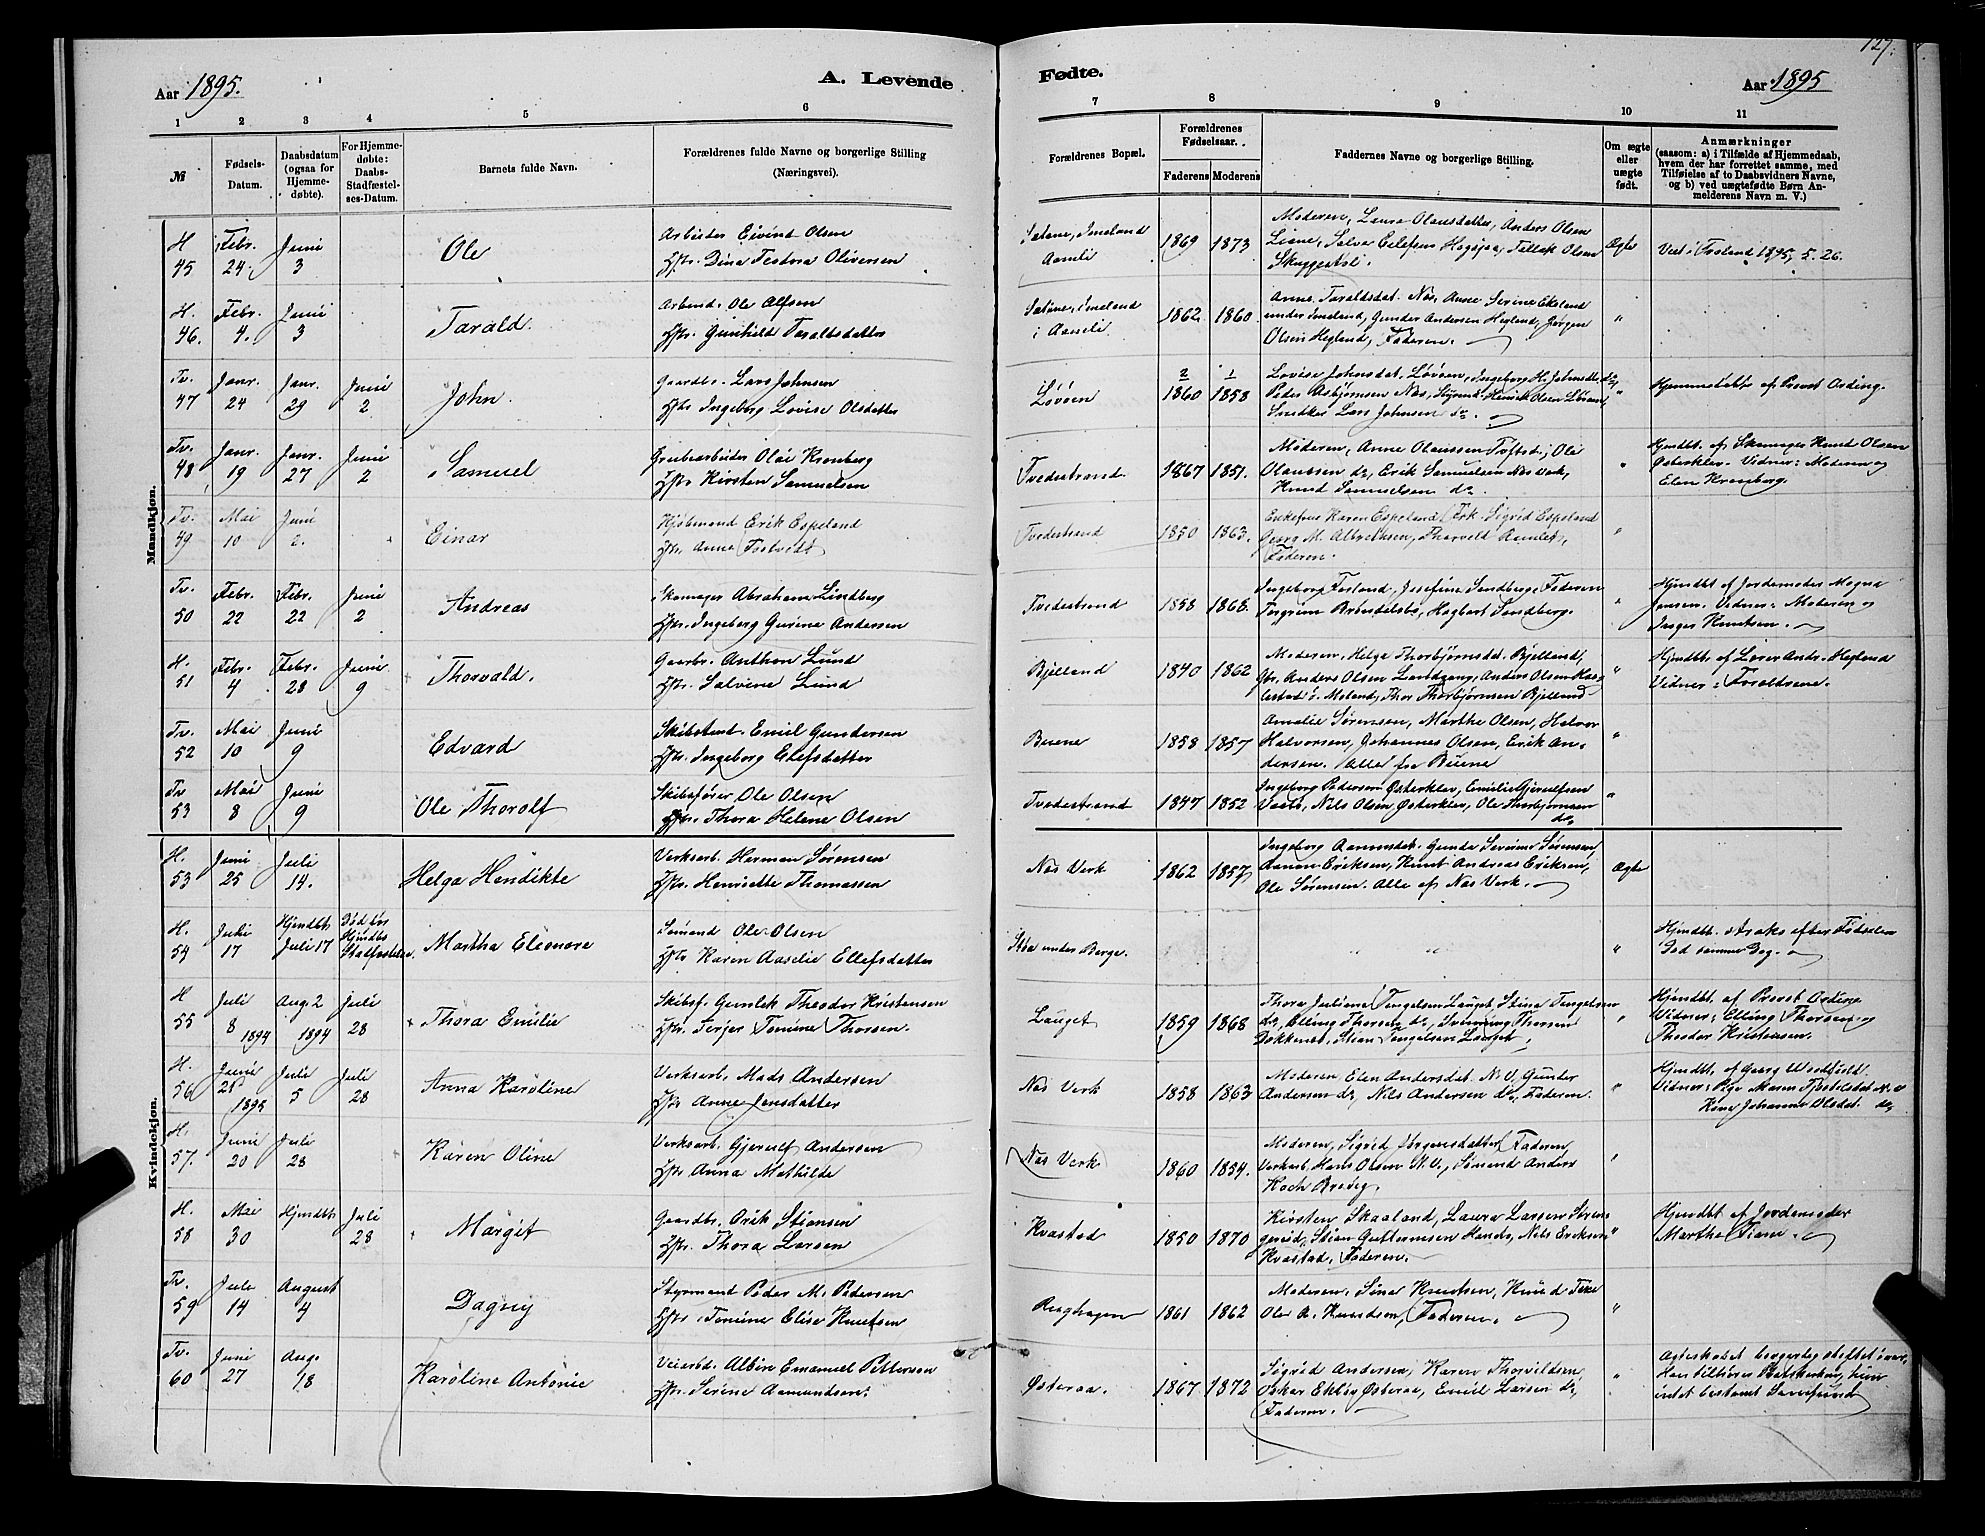 127.
Aar 1895.
A. Levende
Fødte.
Aar 1895
1 2 3 4 5 6
7 8 9 10 11
№
Fødsels-
Datum.
Daabsdatum
(ogsaa for
Hjemme-
døbte).
For Hjemme-
døbte:
Daabs-
Stadfæstel-
ses-Datum.
Barnets fulde Navn.
Forældrenes fulde Navne og borgerlige Stilling
(Næringsvei).
Forældrenes Bopæl.
Forældrenes
Fødselsaar.
Faderens Moderens
Faddernes Navne og borgerlige Stilling.
Om ægte
eller
uægte
født.
Anmærkninger
(saasom: a) i Tilfælde af Hjemmedaab,
hvem der har forrettet samme, med
Tilføielse af to Daabsvidners Navne,
og b) ved uægtefødte Børn An-
melderens Navn m. V.)
Mandkjøn.
H. 45 Febr. 24 Juni 3 Ole
Arbeider Eivind Olsen
Hst. Dina Teodora Oliversen
Aamli 1869 1873
Moderen, Laura Olausdatter, Anders Olsen
Liane, Tellef Olsen
Ægte
1895, 5. 26.
H. 46. Febr. 4. Juni 3 Tarald.
Arbmd. Ole Alfsen
Hst. Gunhild Taraldsdatter
i Aamli 1862 1860
Anne Taraldsdat. Næs, Anne Serine
under Gunder Andersen Hegland, Jørgen
Olsen Hegland, Faderen.
"
Tv. 47 Janr. 24 Janr. 29 Juni 2 John.
Gaardbr. Lars Johnsen
Hst. Ingeborg Lovise Olsdatter
Løvøen 2 1860 1 1858
Lovise Johnsdat. Løvøen, Ingeborg H. Johnsdt. do,
Peder Asbjørnsen Næs, Henrik Olsen
Snedker Lars Johnsen do.
"
Hjemmedøbt af Provst Ording.
Tv. 48 Janr. 19 Janr. 27 Juni 2 Samuel
Grubearbeider Olai Kronberg
Hst. Kirsten Samuelsen
Tvedestrand 1867 1851.
Moderen, Anne Olaussen Tvedestd., Ole
Olaussen do, Erik Samuelsen
Knud Samuelsen do.
"
Hjmdbt. af Skomager Knud Olsen
Østerklev. Vidner: Moderen og
Elen Kronberg.
Tv. 49 Mai 10 Juni 2. Einar
Erik Espeland
Hst. Anne
Tvedestrand 1850 1863.
Enkefrue Karen Espeland, Frk. Sigrid Espeland
Georg M. Albrektsen, Thorvald
Faderen.
"
Tv. 50 Febr. 22 Febr. 22 Juni 2 Andreas
Skomager Abraham Lindberg
Hst. Ingeborg Gurine Andersen
Tvedestrand 1858 1868.
Ingeborg Fosland, Josefine Sandberg, Faderen
Hagbart Sandberg.
Hjmdbt af Jordemoder Magna
Jensen. Vidner: Moderen og
Inger Knutsen.
H. 51 Febr. 4 Febr. 28 Juni 9 Thorvald.
Gaarbr. Anthon Lund
Hst. Salvine Lund
Bjelland 1840 1862
Moderen, Helga Thorbjørnsdat. Bjelland,
Gbr. Anders Olsen Landgang, Anders Olsen
i Moland, Thor Thorbjørnsen Bjelland
"
Hjmdbt. af Lærer Andr. Hegland
Vidner: Forældrene.
Tv. 52 Mai 10 Juni 9 Edvard
Emil Gundersen
Hst. Ingeborg Olefsdatter
Buene 1858 1857
Amalie Sørensen, Marthe Olsen, Halvor
Halvorsen, Johannes Olsen, Erik An-
dersen. Alle fra Buene
"
Tv 53 Mai 8 Juni 9 Ole Thorolf
Skibsfører Ole Olsen
Hst. Thora Helene Olsen
Tvedestrand 1847 1852
Ingeborg Pedersen Østerklev, Emilie Gjerulfsen
Nils Olsen Østerklev, Ole Thorbjørnsen
do
"
Kvindekjøn.
H. 53 Juni 25 Juli 14. Helga Hendikte
Verksarb. Herman Sørensen
Hst. Henriette Thomassen
Næs Verk 1862 1857
Ingeborg Aanonsdat. Gunda Severine Sørensen,
Aanon Eriksen, Knut Andreas Eriksen,
Ole Sørensen. Alle af Næs Verk.
Ægte
H. 54 Juli 17 Hjmdbt. Juli 17
Død før
Hjmdbs
Stadfæstelsen.
Martha Eleonore
Sømand Ole Olsen
Hst. Karen Aaselie Ellefsdatter
Støa under Berge.
" "
"
Hjmdbt. straks efter Fødselen
Død samme Dag.
H 55 Juli 8 1894 Aug. 2 1894 Juli 28 Thora Emilie
Skibsf. Gunlek Theodor Kristensen
Hst. Terjer Tomine Thorsen.
Lauget 1859 1868
Thora Juliane Tengelsen Lauget, Stina Tengelsen
do, Elling Thorsen do, Svenning Thorsen
Stian Tengelsen Lauget.
"
Hjmdbt. af Provst Ording
Vidner: Elling Thorsen og
Theodor Kristensen.
H. 56 Juni 25 1895 Juli 5 Juli 28 Anna Karoline
Verksarb. Mads Andersen
Hst Anne Jensdatter
Næs Verk 1858 1863
Moderen, Elen Andersdat. N.V, Gunter
Andersen do, Nils Andersen do, Faderen.
"
Hjmdbt. af Georg
Vidner: Pige Maren N.V
Kone Johanne Olsdat. do
H. 57. Juni 20 Juli 28 Karen Oline
Verksarb. Gjerulf Andersen
Hst Anna Mathilde
Næs Verk 1860 1854.
Moderen, Sigrid Jørgensdatter, Faderen,
Verksarb. Hans Olsen N.V., Sømand Anders
Koch
H. 58 Mai 30 Hjmdbt Juli 28 Margit
Gaardbr. Erik Stiansen
Hst. Thora Larsen
Kvastad 1850 1870
Kirsten Skaaland, Laura Larsen
Stian Guttormsen Nils Eriksen
Kvastad, Faderen.
"
Hjmdbt af Jordemoder
Marthe
Tv. 59 Juli 14 August 4 Dagny
Styrmand Peder M. Pedersen
Hst. Tomine Elise Knutsen
1861 1862
Moderen, Sina Knutsen, Knud
Ole A. Knudsen, Faderen.
"
Tv. 60 Juni 27 Aug. 18 Karoline Antonie
Veiarbd. Albin Emanuel Pettersen
Hst. Serine Aamundsen.
Østeraa. 1867 1872
Sigrid Andersen, Karen Thorvildsen,
Oskar Ekby Østeraa, Emil Larsen do,
Faderen.
"
Ægteskabet borgerlig stiftet
Han tilhører